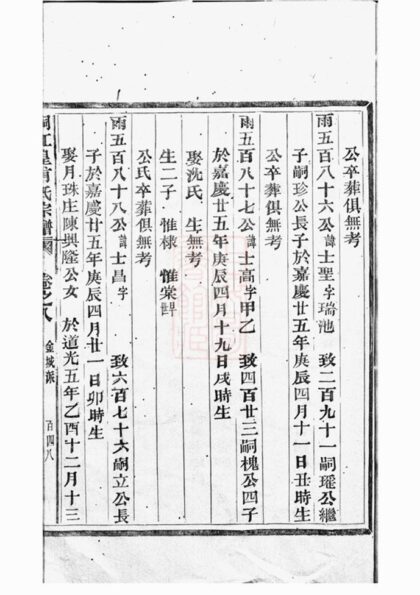 公卒葬俱無考
雨五百八十六公諱士聖字瑞池 致二百九十一嗣瑤公繼
子嗣珍公長子於嘉慶廿五年庚辰四月十一日丑時生
公卒葬俱無考
雨五百八十七公諱士高字甲乙 致四百廿三嗣槐公四子
於嘉慶廿五年庚辰四月十九日戌時生
娶沈氏 生無考 公氏卒葬俱無考
生二子 惟棣 惟棠
雨五百八十八公諱士昌字 致六百七十六嗣立公長
子於嘉慶廿五年庚辰四月廿一日卯時生
娶月珠庄陳興隆公女 於道光五年乙酉十二月十三
桐江皇甫氏宗譜 卷之八 金城派 百四八